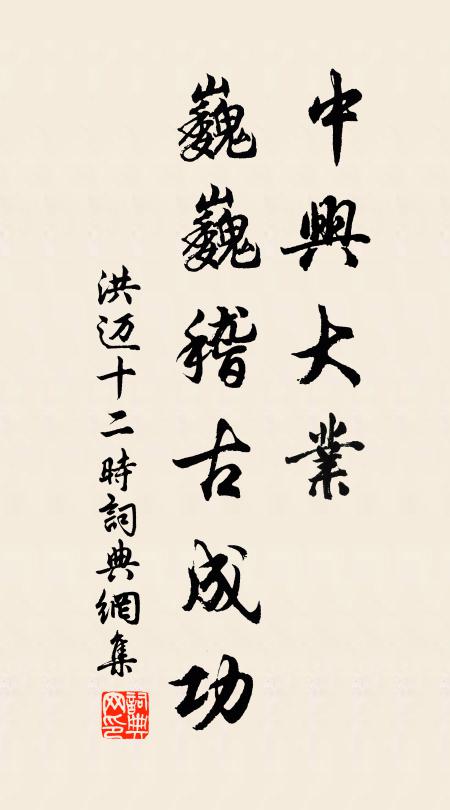 中興大業
巍巍稽古成功
洪迈十二時詞典網集
詞典
网印